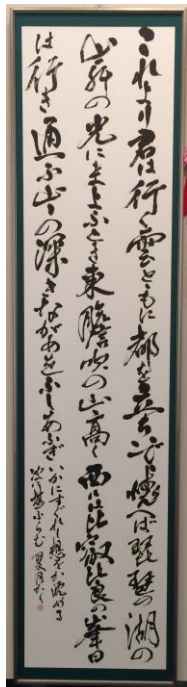 これより君は行く雲とともに都を立ちいでて懐へば琵琶の湖の
岸の光にまよふとき東膽吹の山高く西には比叡比良の峯日
は行き通ふ山々の深きながめをふしあふぎ
いかにすぐれし想をか沈める
波に湛ふらむ